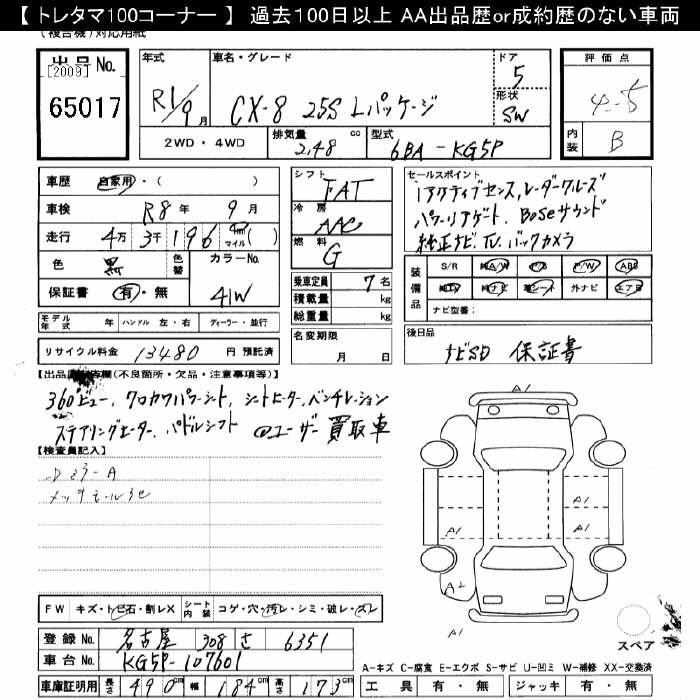 【 トレタマ100コーナー 】 過去100日以上 AA出品歴or成約歴のない車両
(複合機)対応用紙
出品No. [2009] 65017
年式 R1/9月
車名・グレード CX-8 25S Lパッケージ
ドア 5
形状 SW
評価点 4-5
内装 B
2WD・4WD
排気量 2,48 cc
型式 6BA-KG5P
車歴 自家用・( )
車検 R8年 9月
走行 4万3千196 km マイル( )
色 黒 色替
カラーNo. 41W
保証書 有・無
シフト FAT
冷房 AAC
燃料 G
乗車定員 7名
積載量 kg
総重量 kg
セールスポイント
iアクティブセンス,レーダークルーズ
パワーリアゲート、Boseサウンド
純正ナビ、TV、バックカメラ
装備品 S/R 純A/W P/S P/W ABS
純TV 純ナビ 革シート 外ナビ エアB
ナビ型番:
モデル年式 年 ハンドル 左・右 ディーラー・並行
名変期限 月 日
リサイクル料金 13480 円 預託済
後日品 ナビSD 保証書
(不良箇所・欠品・注意事項等)】
360°ビュー、クロカワパワーシート、シートヒーター、ベンチレーション
ステアリングヒーター、パドルシフト @ユーザー買取車
【検査員記入】
A1
A1
A1
A1
A1
A2
A1
FW キズ・トビ石・割レX
シート内装 コゲ・穴・汚レ・シミ・破レ・スレ
登録No. 名古屋 308 さ 6351
車台No. KG5P-107601
車庫証明用 長さ 490cm 幅 184cm 高さ 173cm
スペア
A-キズ C-腐食 E-エクボ S-サビ U-凹ミ W-補修 XX-交換済
工具 有・無 ジャッキ 有・無